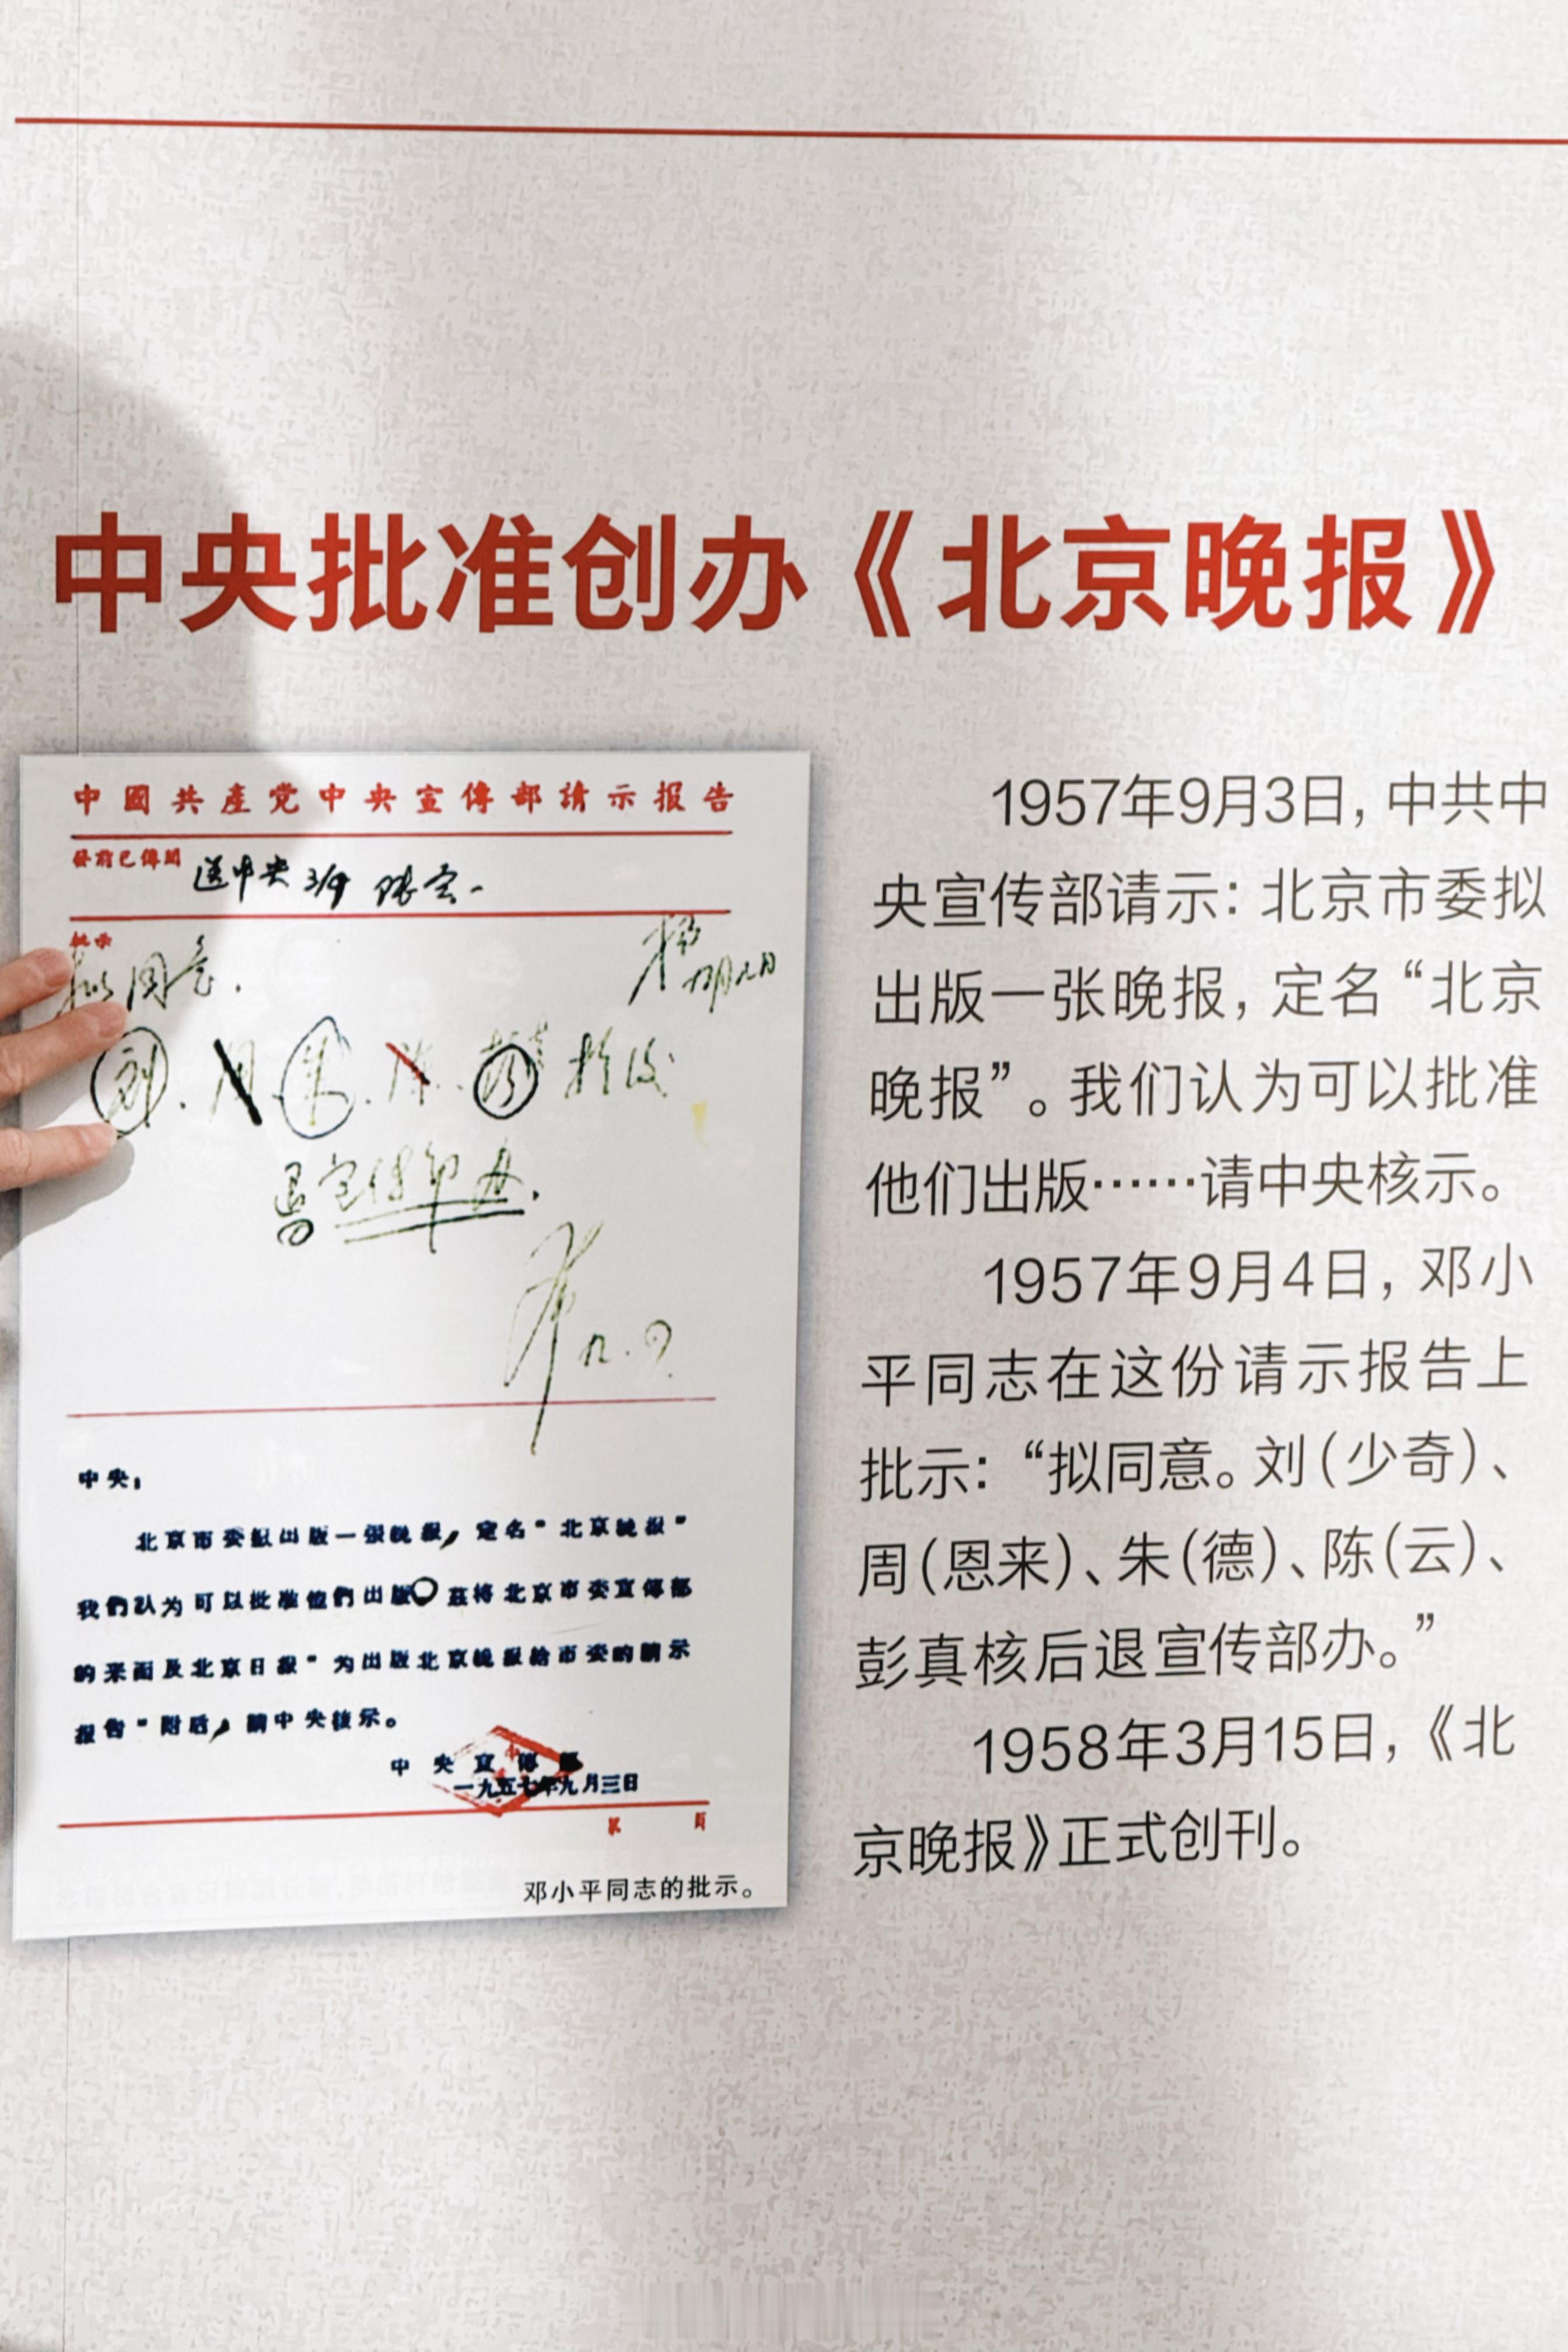 中央批准创办《北京晚报》
中國共產党中央宣傳部請示报告
發前已傳閱
送中央 3/9
批示
拟同意.
中央:
北京市委拟出版一张晚报,定名"北京晚报"
我們认为可以批准他們出版。茲将北京市委宣傳部
的来函及北京日报"为出版北京晚报給市委的請示
报告"附后,請中央核示。
中央宣傳部
一九五七年九月三日
第 頁
邓小平同志的批示。
1957年9月3日,中共中
央宣传部请示:北京市委拟
出版一张晚报,定名“北京
晚报”。我们认为可以批准
他们出版……请中央核示。
1957年9月4日,邓小
平同志在这份请示报告上
批示:“拟同意。刘(少奇)、
周(恩来)、朱(德)、陈(云)、
彭真核后退宣传部办。”
1958年3月15日,《北
京晚报》正式创刊。